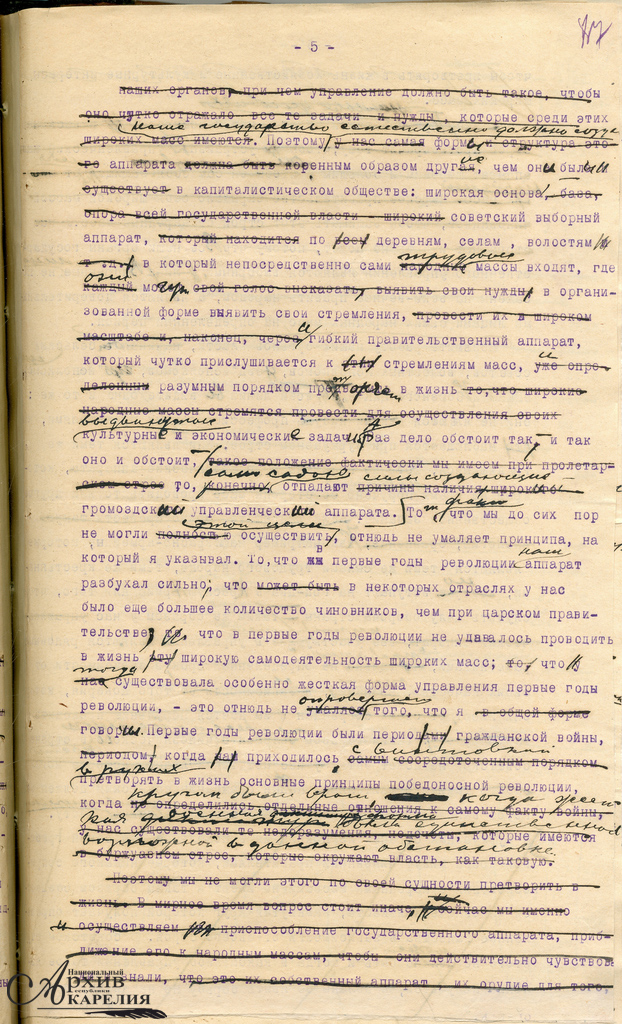 - 5 -
наших органов, при чем управление должно быть такое, чтобы
оно чутко отражало все те задачи и нужды, которые среди этих
наше государство естественно должно созда
широких масс имеются. Поэтому у нас самая форма и структура это-
го аппарата должна быть коренным образом другая, чем они были
существует в капиталистическом обществе: широкая основа, база,
опора всей государственной власти - широкий советский выборный
аппарат, который находится по всей деревням, селам, волостям
трудовые
и т.д. в который непосредственно сами народные массы входят, где
они
каждый могут свой голос высказать, выявить свои нужды в органи-
зованной форме выявить свои стремления, провести их в широком
масштабе и, наконец, через гибкий правительственный аппарат,
который чутко прислушивается к стремлениям масс, и уже опре-
деленным разумным порядком в жизнь то, что широкие
народные массы стремятся провести для осуществления своих
выдвинутые
культурные и экономические задачи. Раз дело обстоит так, и так
оно и обстоит, такое положение фактически мы имеем при пролетар-
само собою
ском строе то, конечно, отпадают причины наличия широкого
громоздкий управленческий аппарата. То что мы до сих пор
этой цели
не могли полностью осуществить, отнюдь не умаляет принципа, на
который я указывал. То, что в первые годы революции наш аппарат
разбухал сильно, что может быть в некоторых отраслях у нас
было еще большее количество чиновников, чем при царском прави-
тельстве, что в первые годы революции не удавалось проводить
в жизнь эту широкую самодеятельность широких масс; то, что у
тогда
нас существовала особенно жесткая форма управления первые годы
опровергает
революции, - это отнюдь не умаляет того, что я в общей форме
говорил. Первые годы революции были периодами гражданской войны,
с винтовкой
периодом, когда нам приходилось самым сосредоточенным порядком
в руках
претворять в жизнь основные принципы победоносной революции,
кругом были враги когда
когда не определились отдельные отношения к самому факту войны,
у нас существовали те недоразумения, недочеты, которые имеются
возможной в данной обстановке.
в буржуазном строе, которые окружают власть, как таковую.
Поэтому мы не могли этого по своей сущности претворить в
жизнь. В мирное время вопрос стоит иначе, и сейчас мы именно
и осуществляем приспособление государственного аппарата, приб-
лижение его к народным массам, чтобы они действительно чувствова
знали, что это их собственный аппарат, их орудие для того,
Национальный
Архив
Республики
Карелия